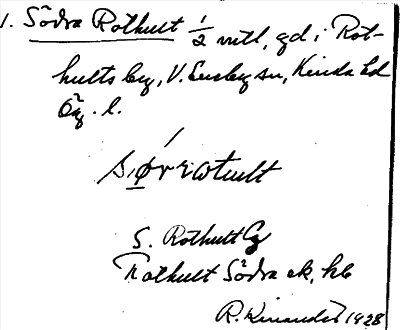 1. Södra Rothult 1/2 mtl, gd i Rot-
hults by, V. Eneby sn, Kinda hd
Ög. l.
S. Rothult By
Rothult Södra ek. kb
R. Kinander 1928